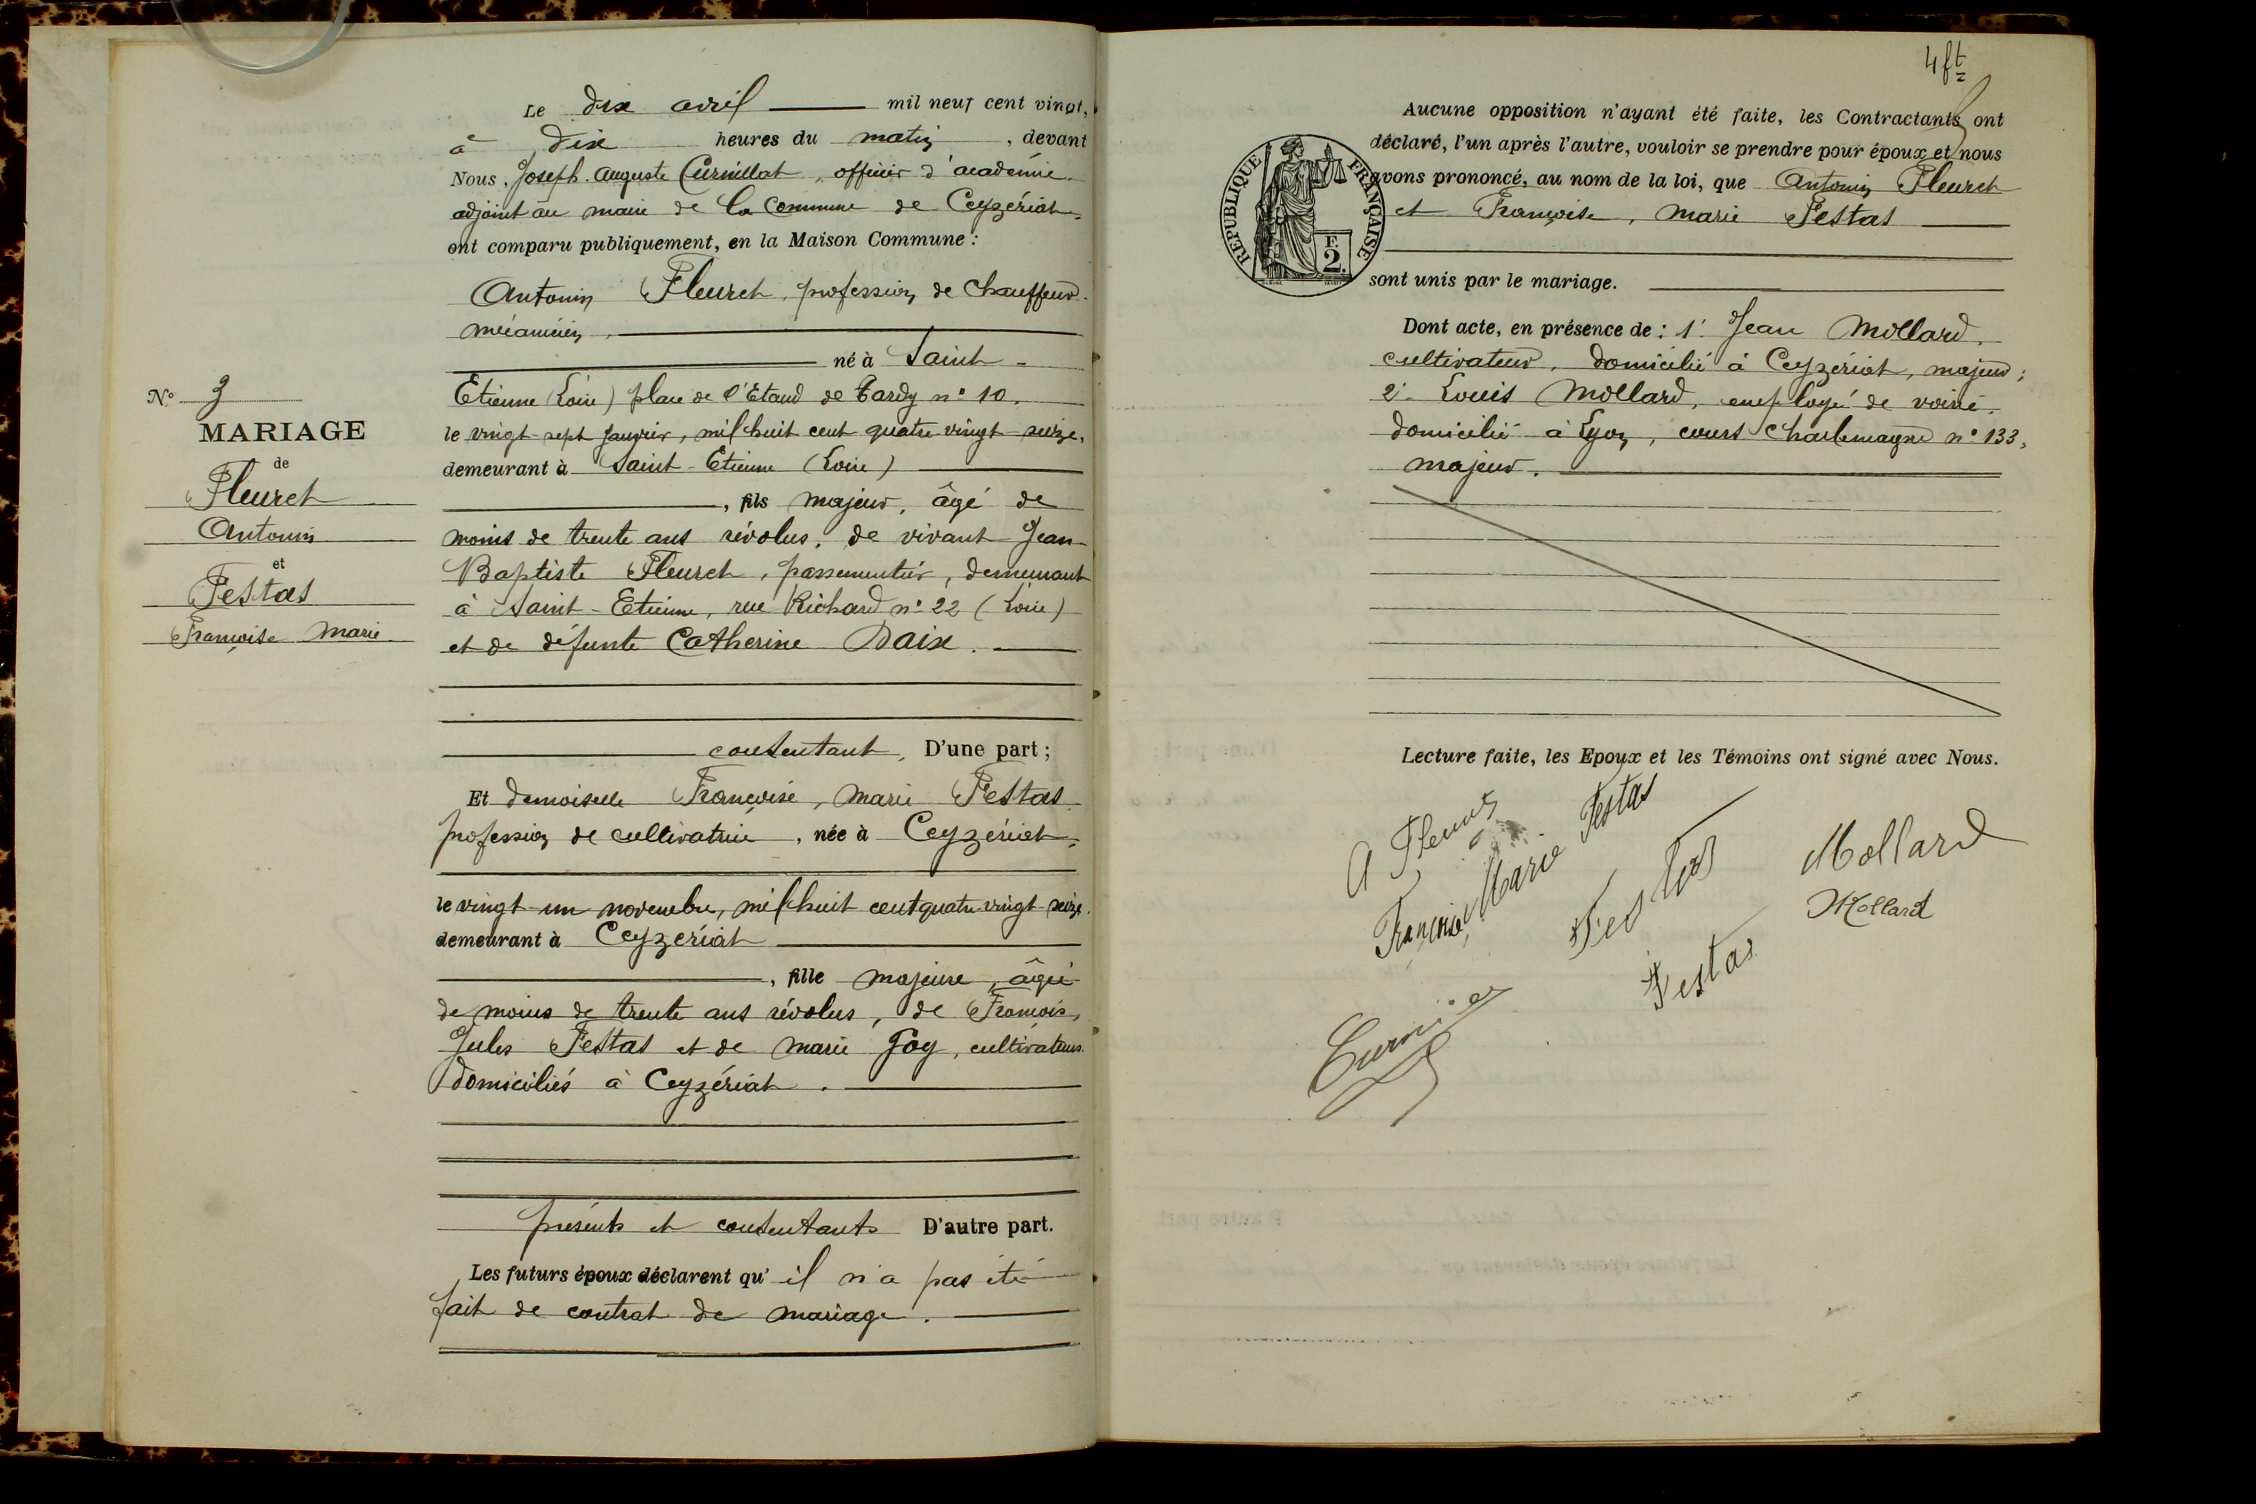 Le dix avril mil neuf cent vingt,
à dix heures du matin, devant
Nous, Joseph Auguste Curnillat, officier d'académie
adjoint au maire de la Commune de Ceyzériat,
ont comparu publiquement, en la Maison Commune :
Antonin Fleuret, profession de chauffeur
mécanicien,
né à Saint-
Etienne (Loire) place de l'Etaud de Tardy n° 10,
le vingt-sept janvier, mil huit cent quatre vingt-seize,
demeurant à Saint-Etienne (Loire)
, fils majeur, âgé de
moins de trente ans révolus, de vivant Jean
Baptiste Fleuret, passementier, demeurant
à Saint-Etienne, rue Richard n° 22 (Loire)
et de défunte Catherine Daix.
consentant, D'une part ;
Et demoiselle Françoise, Marie Festas
profession de cultivatrice, née à Ceyzériat,
le vingt-un novembre, mil huit cent quatre vingt-seize,
demeurant à Ceyzériat
, fille majeure, âgée
de moins de trente ans révolus, de François,
Jules Festas et de Marie Goy, cultivateurs
domiciliés à Ceyzériat.
présents et consentants D'autre part.
Les futurs époux déclarent qu'il n'a pas été
fait de contrat de mariage.
N° 3
MARIAGE
de
Fleuret
Antonin
et
Festas
Françoise Marie
4 ft
Aucune opposition n'ayant été faite, les Contractants ont
déclaré, l'un après l'autre, vouloir se prendre pour époux et nous
avons prononcé, au nom de la loi, que Antonin Fleuret
et Françoise, Marie Festas
sont unis par le mariage.
REPUBLIQUE FRANÇAISE
F. 2.
Dont acte, en présence de : 1° Jean Mollard,
cultivateur, domicilié à Ceyzériat, majeur ;
2° Louis Mollard, employé de voirie,
domicilié à Lyon, cours Charlemagne n° 133,
majeur.
Lecture faite, les Epoux et les Témoins ont signé avec Nous.
A Fleuret
Françoise Marie Festas
Festas
Mollard
Mollard
Festas